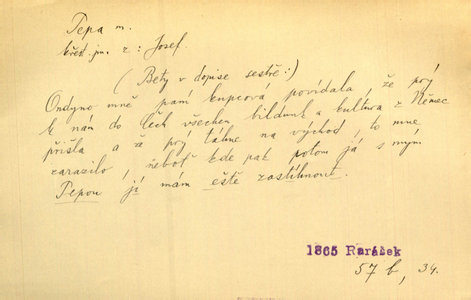 Pepa m.
křest. jm. z: Josef
(Bety v dopise sestře:)
Ondyno mně paní kupcová povídala, že prý
k nám do Čech všechen bildunk a kultura z Němec
přišla a že prý táhne na východ, to mne
zarazilo, neboť kde pak potom já s mým
Pepou jí mám eště zastihnout.
1865 Rarášek
57 b, 34.